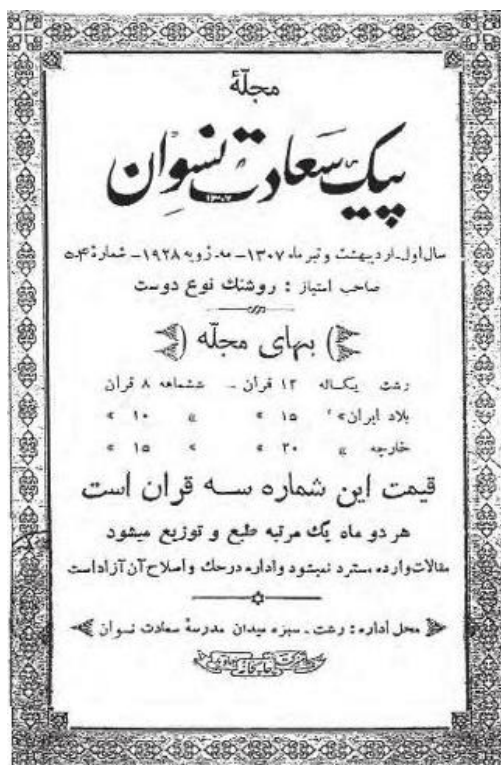 مجلّهٔ
پیک سعادت نسوان
۱۳۰۷
سال اول - اردیبهشت و تیر ماه ۱۳۰۷ - مه - ژویه ۱۹۲۸ - شمارهٔ ۴ ۵
صاحب امتیاز : روشنك نوع دوست
بهای مجلّه
رشت یکساله ۱۳ قران - ششماهه ۸ قران
بلاد ایران » ۱۵ » » ۱۰ »
خارجه » ۳۰ » » ۱۵ »
قیمت این شماره سه قران است
هر دو ماه یك مرتبه طبع و توزیع میشود
مقالات وارده مسترد نمیشود و اداره در حك و اصلاح آن آزاد است
محل اداره : رشت - سبزه میدان مدرسهٔ سعادت نسوان